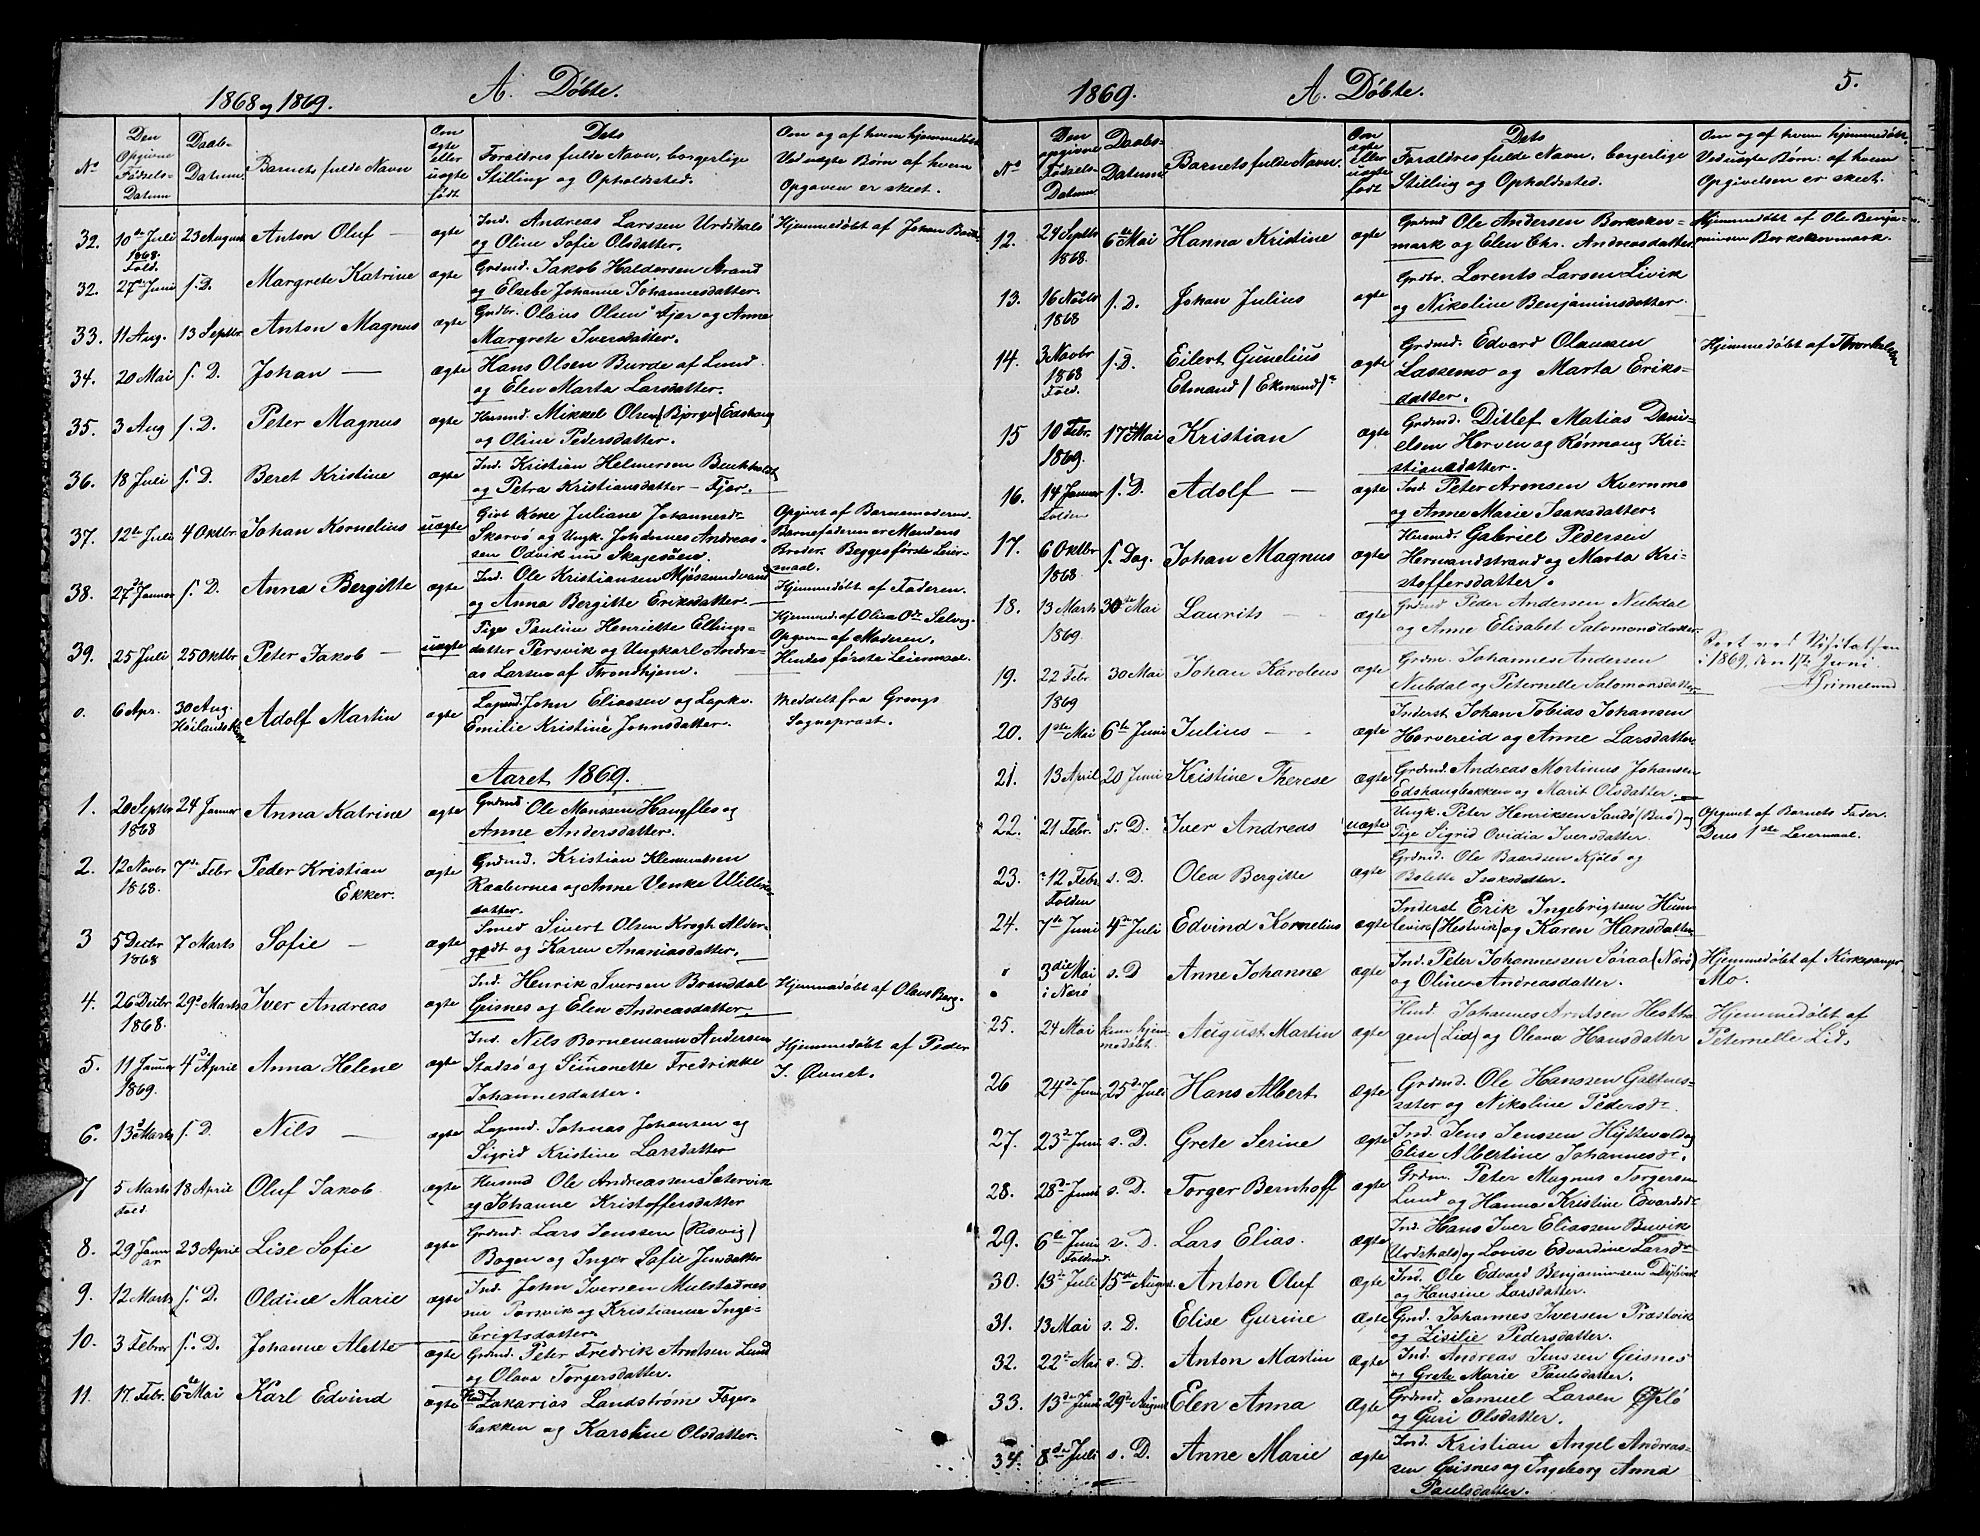 1868 og 1869. A. Döbte.
No Den Opgivne Födsels-Datum Daabs-Datum. Barnets fulde Navn Om ægte eller uægte födt. Dets Forældres fulde Navn, borgerlige Stilling og Opholdssted. Om og af hvem hjemmedöbt Ved uægte Börn af hvem Opgaven er skeet.
32. 10de Juli 23 August Anton Oluf — ægte Ind. Andreas Larsen Urdshals Hjemmedöbt af Johan
1868. Fold. og Oline Sofie Olsdatter.
32. 27de Juni s. D. Margrete Katrine ægte Grdmd. Jakob Haldorsen Strand
og Elsebe Johanne Johannesdatter.
33. 11 Aug. 13 Septbr Anton Magnus ægte Grdbr. Olaus Olsen Fjær og Anne
Margrete Iversdatter.
34. 20 Mai s. D. Johan — ægte Hans Olsen Burde af Lund
og Elen Marta Larsdatter.
35. 3 Aug s. D. Peter Magnus ægte Husmd. Mikkel Olsen (Bjørge) Edshaug
og Oline Pedersdatter.
36. 18 Juli s. D. Beret Kristine ægte Ind. Kristian Helmersen
og Petra Kristiansdatter — Fjær.
37. 12te Juli 4 Oktbr. Johan Kornelius uægte Givt Kone Juliane Johannesd. Opgivet af Barnemoderen.
Skorvö og Ungk. Johannes Andreas- Barnefaderen er Mandens
sen Odvik nu Skagesöen. Broder. Begges förste Leier-
maal.
38. 27de Januar s. D. Anna Bergitte ægte Ind. Ole Kristiansen Mjösundvand Hjemmedöbt af Faderen.
og Anna Bergitte Eriksdatter.
39. 25 Juli 25 Oktbr Peter Jakob — uægte Pige Pauline Henriette Ellings- Hjemmed. af Olina Selvog
datter Persvik og Ungkarl Andre- Opgiven af Moderen.
as Larsen af Trondhjem. Hendes förste Leiermaal.
o. 6 Apr. 30 Aug. Adolf Martin ægte Lapmd. John Eliassen og Lapkv. Meddelt fra Grongs
Höilandet Emilie Kristine Johnsdatter. Sogneprest.
Aaret 1869.
1. 20 Septbr 24 Januar Anna Katrine ægte Grdmd. Ole Monssen Haugfles og
1868 Anne Andersdatter.
2. 12 Novbr 7de Febr Peder Kristian ægte Grdmd. Kristian Klemmetsen
1868. Ekker. Raabernes og Anne Venke Willu
datter.
3 5 Decbr 7 Marts Sofie — ægte Smed Sivert Olsen Krogh Alder-
1868 godt og Karen Ananiasdatter.
4. 26 Decbr 29de Marts Iver Andreas ægte Ind. Henrik Iversen Branddal Hjemmedöbt af Olaus Berg.
1868. Geisnes og Elen Andreasdatter.
5. 11 Januar 4de April Anna Helene ægte Ind. Nils Bornemann Andersen Hjemmedöbt af Peder
1869. Stadsö og Simonette Fredrikke J. Övnet.
Johannesdatter.
6. 13de Marts s. D. Nils — ægte Lapmd. Johnas Johansen og
Sigrid Kristine Larsdatter
7 5 Marts 18 April Oluf Jakob ægte Husmd Ole Andreassen Sætervik
Fold. og Johanne Kristoffersdatter
8. 29 Janu 23 April Lise Sofie ægte Grdmd. Lars Jenssen (Risvig)
ar Bogen og Inger Sofie Jensdatter
9. 12 Marts s. D. Oldine Marie ægte Ind. John Iversen Mulstadnes
nu Torsvik og Kristianne Inge-
brigtsdatter.
10. 3 Febr s. D. Johanne Alette ægte Grdmd. Peter Fredrik Arntsen Lund
og Olava Torgersdatter.
11. 17 Febr. 6te Mai Karl Edvind ægte Zakarias Landström Fager-
bakken og Karoline Olsdatter.
1869. A. Döbte. 5.
No Den opgivne Födsels-Datum. Daabs-Datum Barnets fulde Navn. Om ægte eller uægte födt Dets Forældres fulde Navn, borgerlige Stilling og Opholdssted. Om og af hvem hjemmedöbt. Ved uægte Börn: af hvem Opgivelsen er skeet.
12. 24 Septbr 6te Mai Hanna Kristine ægte Grdmd Ole Andersen Borkskor- Hjemmedöbt af Ole Benja-
1868. mark og Elen Chr. Andreasdatter. minsen Borkskormark.
13. 16 Novbr s. D. Johan Julius ægte Grdbr. Lorents Larsen Livik
1868 og Nikoline Benjaminsdatter.
14. 3 Novbr s. D. Eilert Gunelius ægte Grdmd. Edvard Olaussen Hjemmedöbt af
1868 Fold. Etmand (Ekmund) Lassemo og Marta Eriks-
datter.
15 10 Febr. 17de Mai Kristian ægte Grdmd. Ditlef Matias Dani-
1869. elsen Horven og Römoug Kri-
stiansdatter.
16. 14 Januar s. D. Adolf — ægte Ind Peter Aronsen Kvernmo
Folden og Anne Marie Isaksdatter.
17. 6 Oktbr s. Dag. Johan Magnus ægte Husmd. Gabriel Pedersen
1868. Hermandstrand og Marta Kri-
stoffersdatter.
18. 13 Marts 30te Mai Laurits ægte Grdmd Peder Andersen Nubdal
1869. og Anne Elisabet Salomonsdatter.
Seet ved Visitatsen
19. 22 Febr 30 Mai Johan Karolius ægte Grdm. Johannes Andersen i 1869, den 1ste Juni.
1869 Nubdal og Peternelle Salomonsdatter Grimelund
20. 1ste Mai 6te Juni Julius — ægte Inderst Johan Tobias Johansen
Horvereid og Anne Larsdatter
21. 13 April 20 Juni Kristine Therese ægte Grdmd. Andreas Mortinus Johansen
Edshaugbakken og Marit Olsdatter.
22. 21 Febr. s. D. Iver Andreas uægte Ungk. Peter Henriksen Sandö (Berö) og Opgivet af Barnets Fader.
Pige Sigrid Ovidia Iversdatter. Deres 1ste Leiermaal.
23. 12 Febr s. D. Olea Bergitte ægte Grdmd. Ole Baardsen Kjölö og
Folden Bolette Isaksdatter.
24. 7de Juni 4de Juli Edvind Kornelius ægte Inderst Erik Ingebrigtsen Hum-
levik (Hestvik) og Karen Hansdatter
o 3die Mai s. D Anne Johanne ægte Ind. Peter Johannessen Söraa (Nærö) Hjemmedöbt af Kirkesanger
i Nærö og Oline Andreasdatter. Mo.
25. 24 Mai kun hjem- August Martin ægte Husmd. Johannes Arntsen Hestha- Hjemmedöbt af
medöbt. gen (Lid) og Oleana Hansdatter Peternelle Lid.
26 24de Juni 25de Juli Hans Albert ægte Grdmd. Ole Hanssen Galtnes-
sæter og Nikoline Pedersdr.
27. 23de Juni s. D. Grete Serine ægte Ind. Jens Jenssen Hyttevold og
Elise Albertine Johannesdr.
28. 28de Juni s. D. Torger Bernhoff ægte Grdm. Peter Magnus Torgersen
Lund og Hanna Kristine Evardsdr
29. 6te Juni s. D. Lars Elias. ægte Ind. Hans Iver Eliassen Buvik
Foldend. (Urdshals) og Lovise Edvardine Larsdr
30. 13de Juli 15de August Anton Oluf ægte Ind. Ole Edvard Benjaminsen Dybvik
og Hansine Larsdatter.
31. 13 Mai s. D. Elise Gurine ægte Grmd. Johannes Iversen Præstvik
og Zisilie Pedersdatter.
32. 22de Mai s. D. Anton Martin ægte Ind. Andreas Jenssen Geisnes
og Grete Marie Paulsdatter.
33. 13de Juni 29de August Elen Anna ægte Grdmd. Samuel Larsen
og Guri Olsdatter.
34. 8de Juli s. D. Anne Marie ægte Ind. Kristian Angel Andreas-
sen Geisnes og Ingeborg Anna
Paulsdatter.